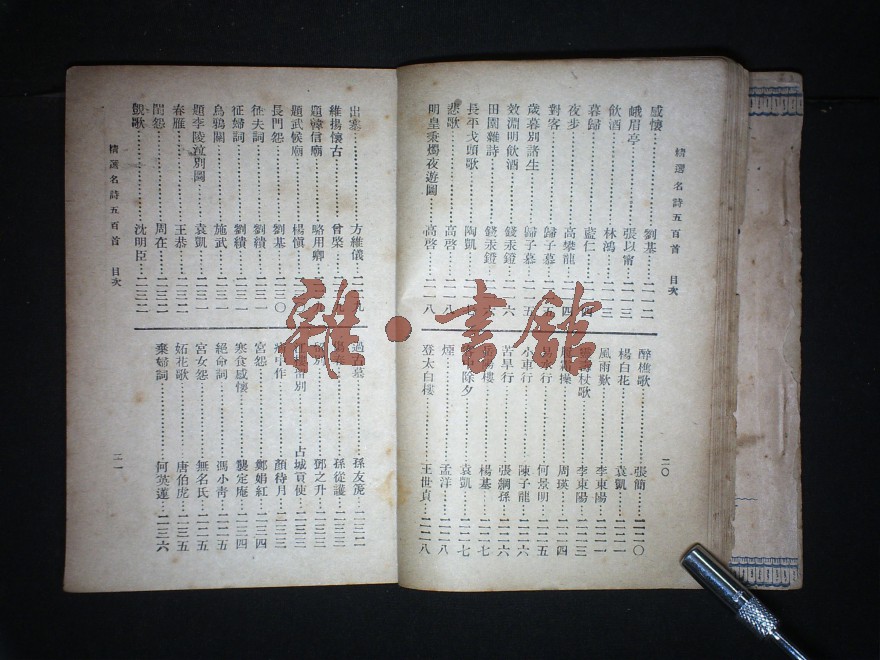 精選名詩五百首 目次
感懷 劉基 二一二
峨眉亭 張以甯 二一三
飲酒 林鴻 二一三
暮歸 藍仁 二一四
夜步 高攀龍 二一四
對客 歸子慕
歲暮別諸生 歸子慕 二一五
效淵明飲酒 錢汞鐙 二一六
田園雜詩 錢汞鐙
長平戈頭歌 陶凱
悲歌 高啓 二一八
明皇秉燭夜遊圖 高啓 二一八
醉樵歌 張簡 二二〇
楊白花 袁凱 二二一
風雨歎 李東陽 二二一
杖歌 李東陽 二二三
周瑛 二二四
行 何景明 二二五
小車行 陳子龍 二二六
苦旱行 張綱孫 二二六
樓 楊基 二二七
中除夕 袁凱 二二七
煙 孟洋 二二八
登太白樓 王世貞 二二八
二〇
出塞 方維儀 二二九
維揚懷古 曾棨
題韓信廟 駱用卿
題武候廟 楊愼
長門怨 劉基 二三〇
征夫詞 劉績 二三一
征婦詞 劉績 二三一
烏鴉關 施武 二三一
題李陵泣別圖 袁凱 二三一
春雁 王恭 二三二
閨怨 周在 二三二
凱歌 沈明臣 二三二
精選名詩五百首 目次
過古墓 孫友箎 二三二
孫從護 二三三
別 鄧之升 二三三
留別 占城貢使 二三三
病中作 顏待月 二三三
宮怨 鄭娟紅 二三四
寒食感懷 製定庵 二三四
絕命詞 馮小靑 二一五
宮女怨 無名氏 二一五
妬花歌 唐伯虎 二三五
棄婦詞 何英蓮 二三六
二一
雜·書館